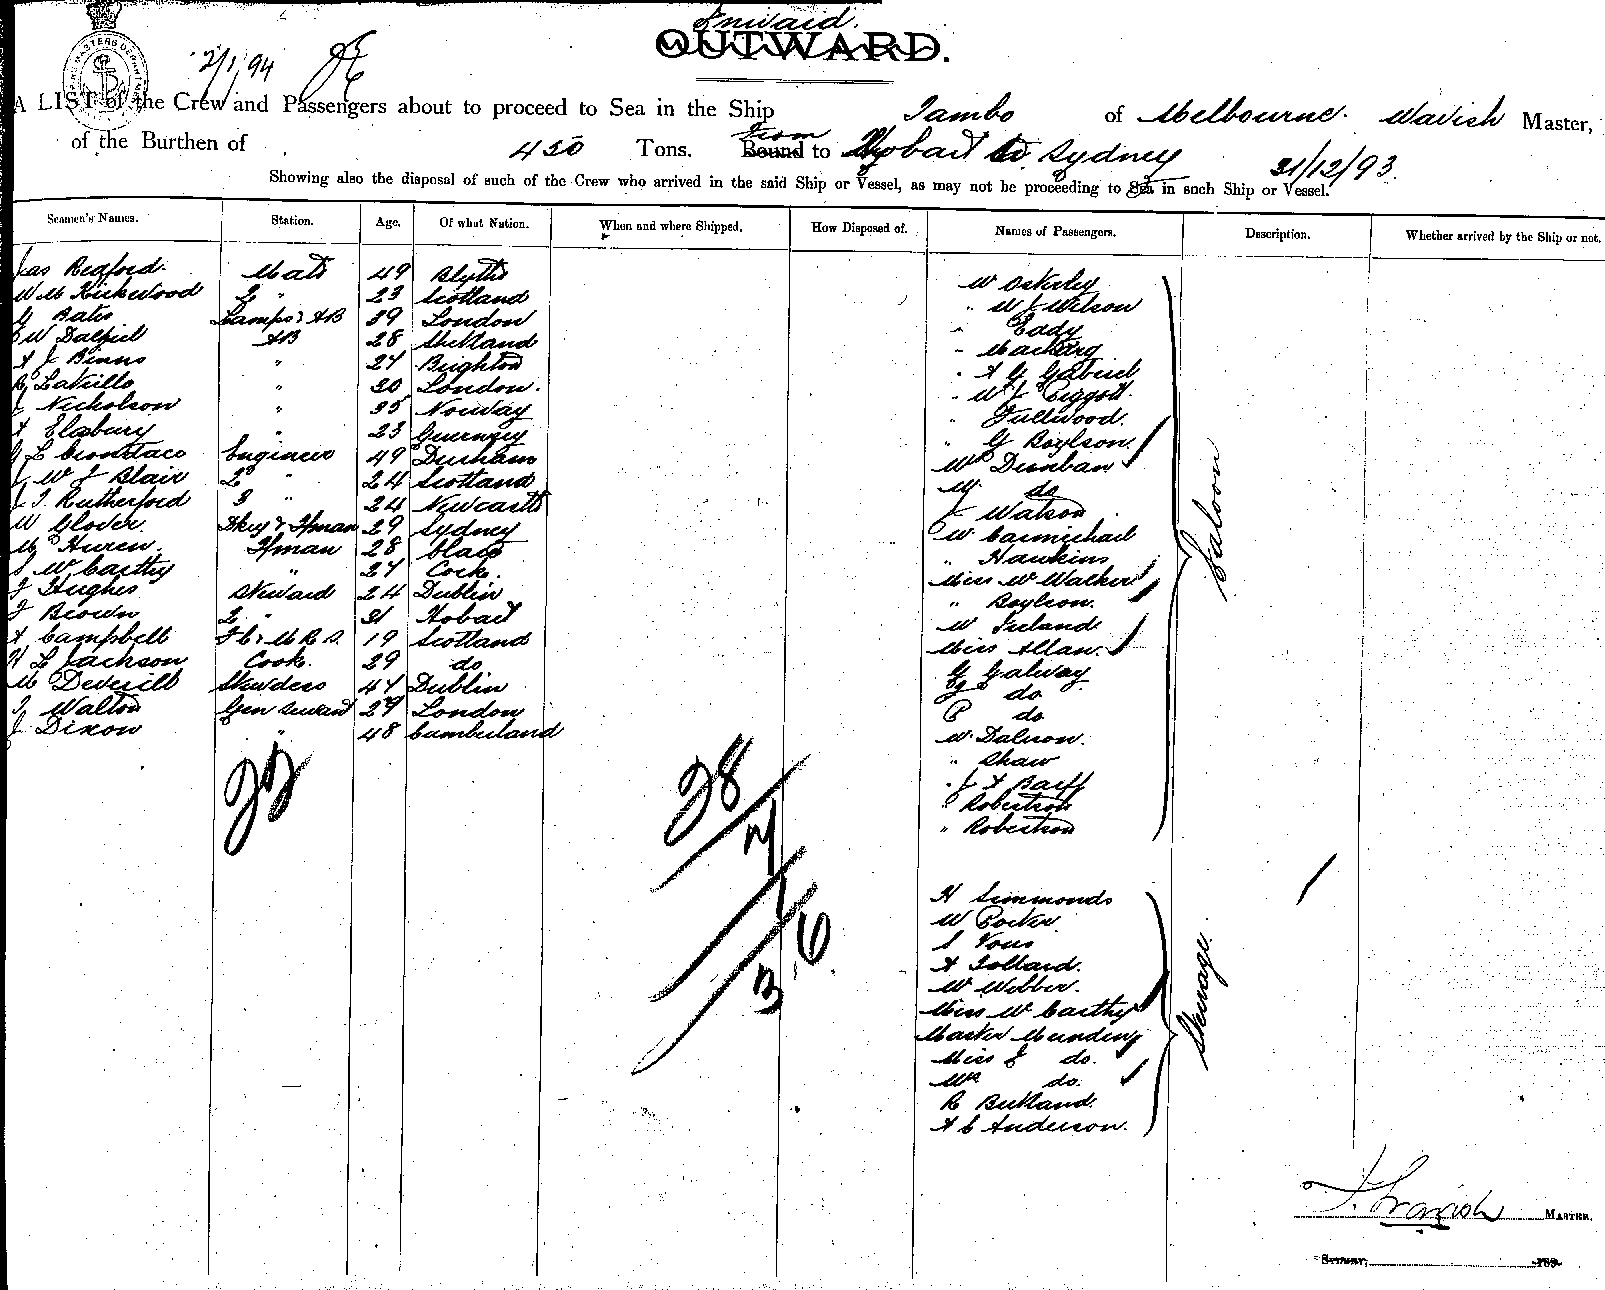 Inward.
OUTWARD.
2/1/94
A LIST of the Crew and Passengers about to proceed to Sea in the Ship Tambo of Melbourne. Master,
from
of the Burthen of 450 Tons. Bound to Hobart to Sydney 31/12/93
Showing also the disposal of such of the Crew who arrived in the said Ship or Vessel, as may not be proceeding to Sea in such Ship or Vessel.
Seamen's Names. Station. Age. Of what Nation. When and where Shipped. How Disposed of. Names of Passengers. Description. Whether arrived by the Ship or not.
Jas Bedford Mate 49 Blyth
W M Kirkwood 2 " 23 Scotland
Bates Lamps & AB 39 London
W Dalziel AB 28 Shetland
A J Binns " 27 Brighton
" 30 London.
J Nicholson " 35 Norway
A " 23 Guernsey
Engineer 49 Durham
J W J Blair 2 " 24 Scotland
J T Rutherford 3 " 24 Newcastle
W Glover 29 Sydney
M Huren Fman 28 Clare
McCarthy " 27 Cork.
J Hughes Steward 24 Dublin
J Brown 2 " 31 Hobart
A Campbell 19 Scotland
H L Jackson Cook. 29 do
M Deverill Stewdess 47 Dublin
Walton Gen Servant 29 London
J Dixon " 48 Cumberland
38
7
6
3
Mr
" W J Wilson
" Eady
"
" A G Gabriel
" W J Piggott
" Fullwood.
" G Boylson
Mrs Dunban
M do
J Watson
Mr Carmichael
" Hawkins
Miss McWalker
" Boylson.
Mr Ireland
Miss Allan.
G Galway
do
P do
Mr Dalison.
" Shaw
" J A Barff
" Robertson
" Robertson
Saloon
H Simmonds
W
S Vous
A Tolland.
W Webber.
Miss McCarthy
Master Munding
Miss J do.
Mrs do.
R Butland.
A C Anderson.
Steerage
MASTER.